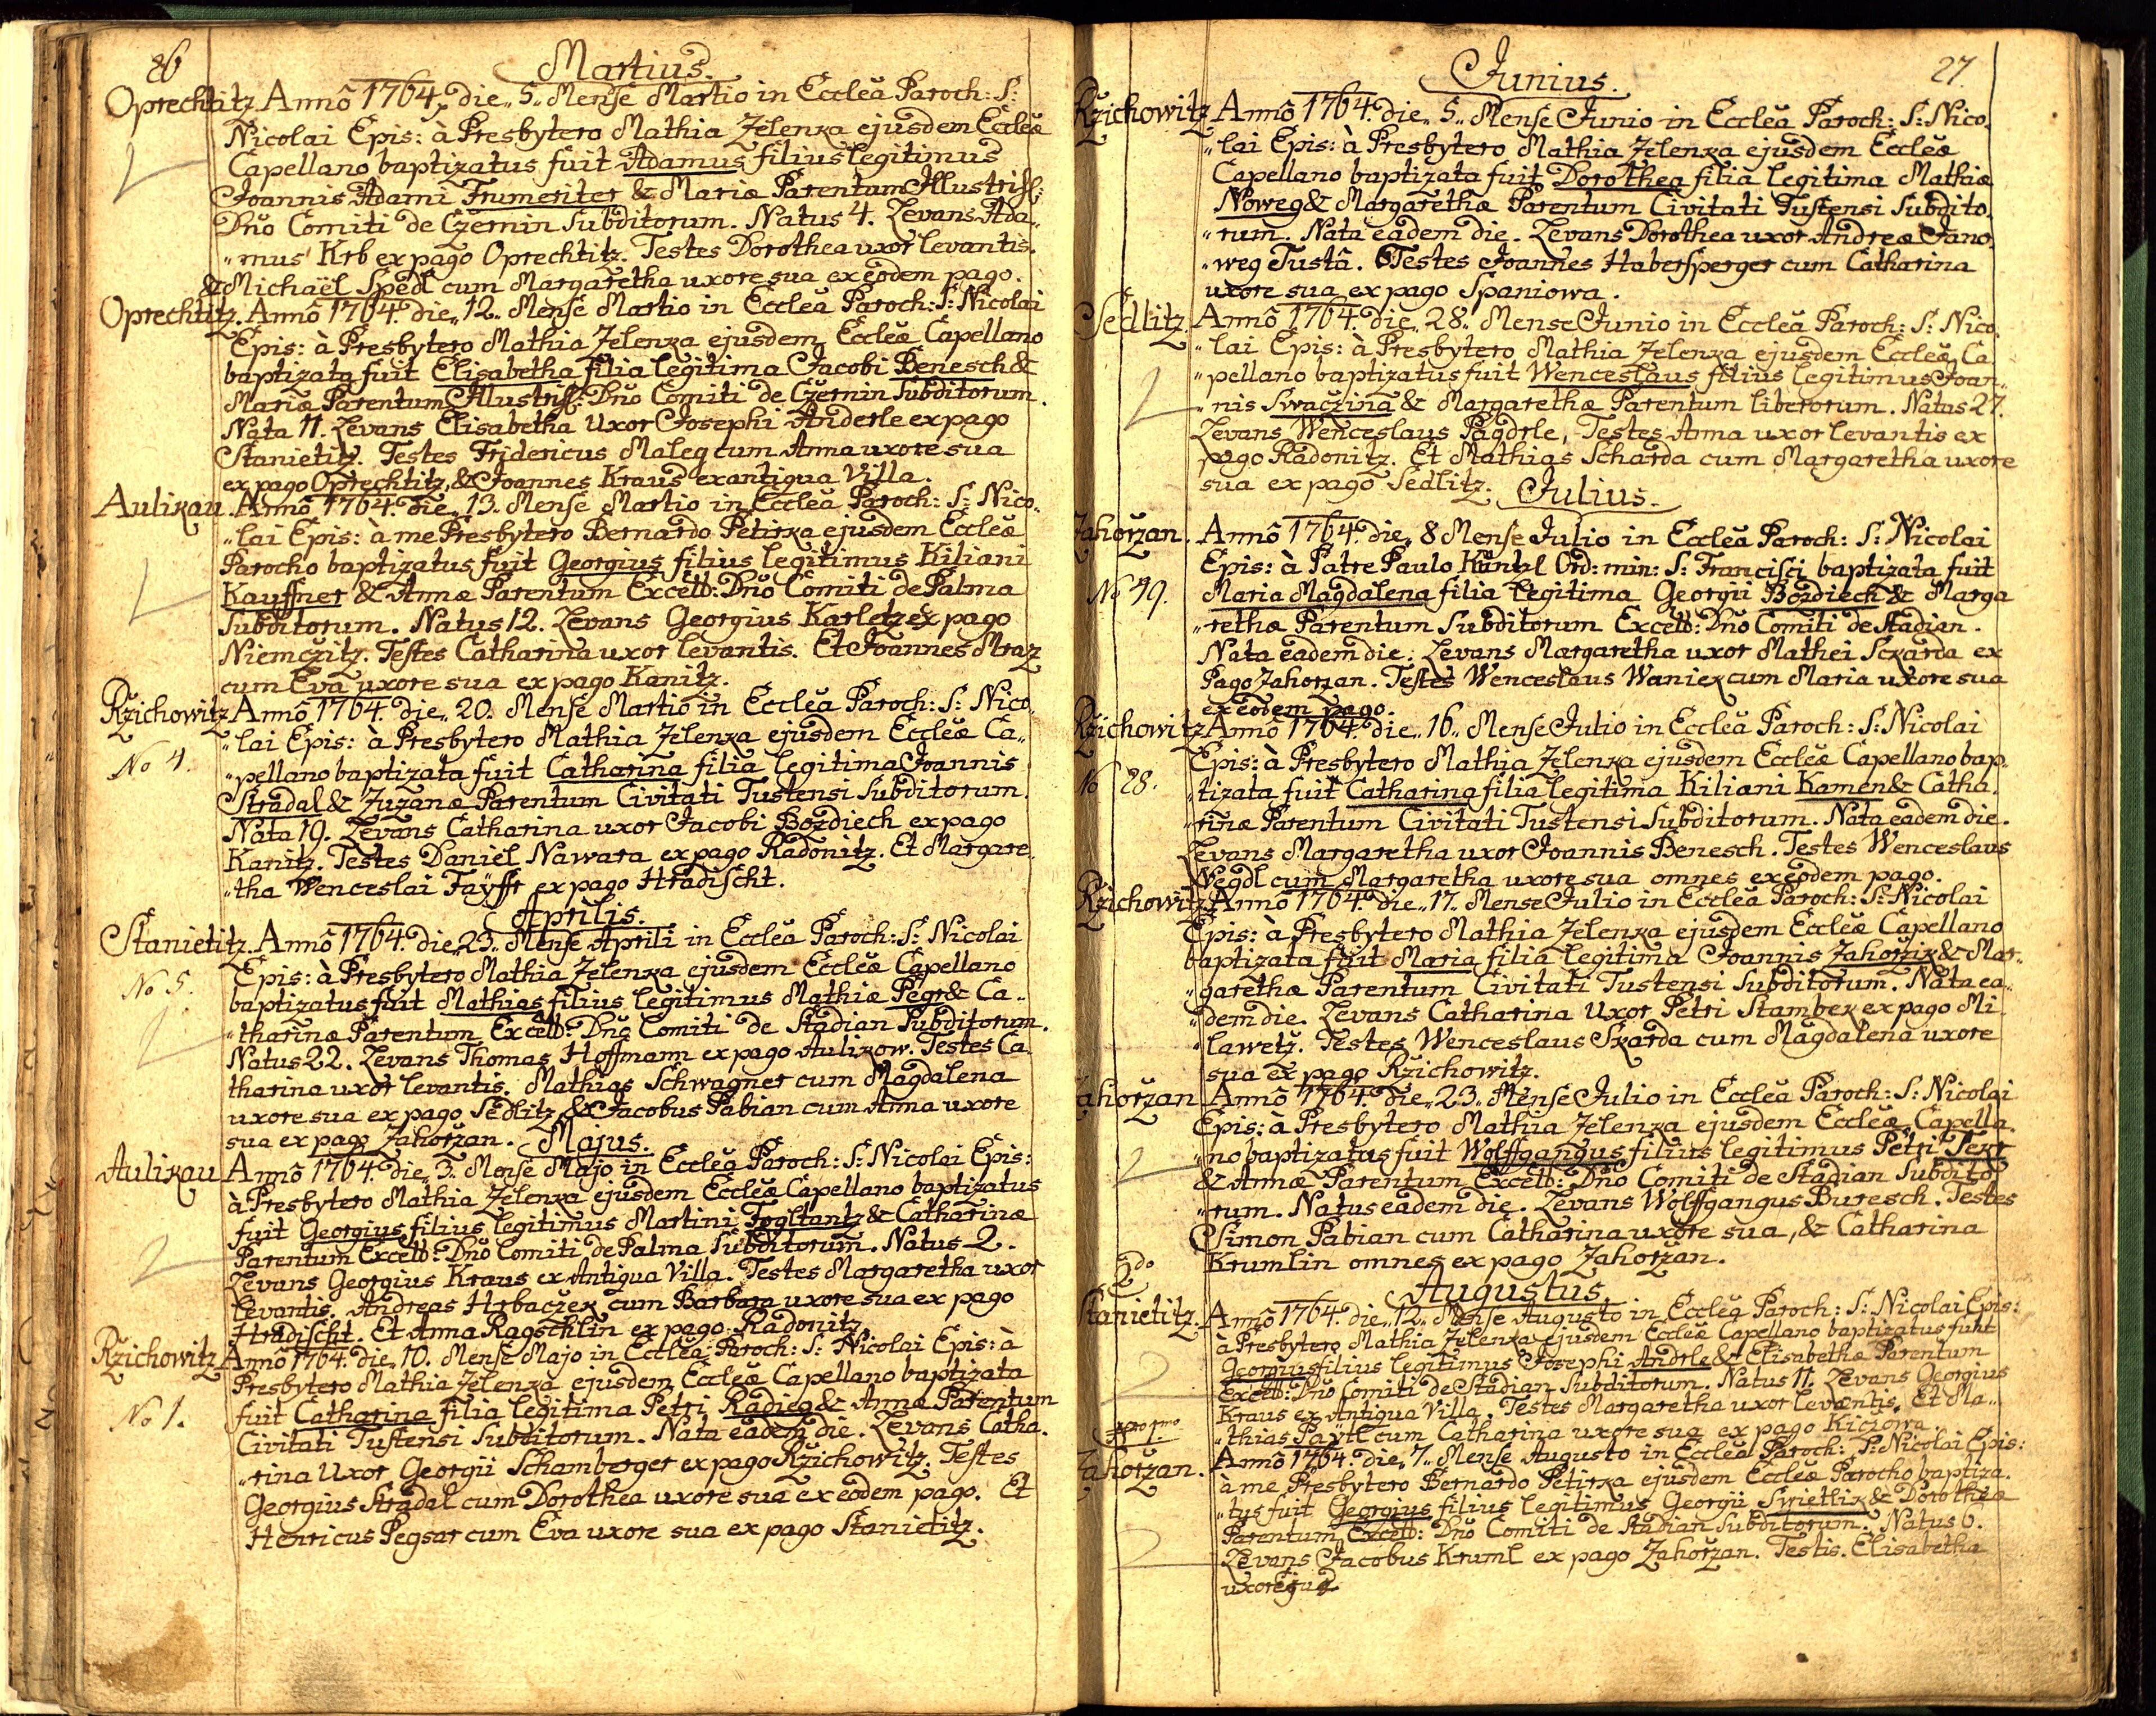 26
Martius.
Oprechtitz. Annô 1764. die „5„ Mense Martio in Eccleă Paroch: S:
Nicolai Epis: à Presbytero Mathia Zelenka ejusdem Eccleæ
Capellano baptizatus fuit Adamus filius legitimus
Joannis Adami Frumeriter & Mariæ Parentum Illustriss:
Dño Comiti de Czernin Subditorum. Natus 4. Levans Ada„
„mus Krb ex pago Oprechtitz. Testes Dorothea uxor levantis.
& Michaël Spedl cum Margaretha uxore sua ex eodem pago.
Oprechtitz. Annô 1764. die „12„ Mense Martio in Eccleă Paroch: S: Nicolai
Epis: à Presbytero Mathia Zelenka ejusdem Eccleæ Capellano
baptizata fuit Elisabetha filia legitima Jacobi Benesch &
Mariæ Parentum Illustriss: Dño Comiti de Czernin Subditorum.
Nata 11. Levans Elisabetha Uxor Josephi Anderle ex pago
Stanietitz. Testes Fridericus Maleg cum Anna uxore sua
ex pago Oprechtitz, & Joannes Kraus ex antiqua Villa.
Aulikau. Annô 1764. die „13„ Mense Martio in Eccleă Paroch: S: Nico„
„lai Epis: à me Presbytero Bernardo Petirka ejusdem Eccleæ
Parocho baptizatus fuit Georgius filius legitimus Kiliani
Kauffner & Annæ Parentum Excells: Dño Comiti de Palma
Subditorum. Natus 12. Levans Georgius Karletz ex pago
Niemczitz. Testes Catharina uxor levantis. Et Joannes Mraz
cum Eva uxore sua ex pago Kanitz.
Rzichowitz Annô 1764. die „20. Mense Martio in Eccleă Paroch: S: Nico„
No 4. „lai Epis: à Presbytero Mathia Zelenka ejusdem Eccleæ Ca„
„pellano baptizata fuit Catharina filia legitima Joannis
Stradal & Zuzanæ Parentum Civitati Tustensi Subditorum.
Nata 19. Levans Catharina uxor Jacobi Bozdiech ex pago
Kanitz. Testes Daniel Nawara ex pago Radonitz. Et Margare„
„tha Wenceslai Fayffr ex pago Hradischt.
Aprilis.
Stanietitz. Annô 1764. die „23„ Mense Aprili in Eccleă Paroch: S: Nicolai
No 5. Epis: à Presbytero Mathia Zelenka ejusdem Eccleæ Capellano
baptizatus fuit Mathias filius legitimus Mathiæ Pegr & Ca„
„tharinæ Parentum Excells: Dño Comiti de Stadian Subditorum.
Natus 22. Levans Thomas Hoffmann ex pago Aulikow. Testes Ca„
tharina uxor levantis. Mathias Schwagner cum Magdalena
uxore sua ex pago Sedlitz, & Jacobus Pabian cum Anna uxore
sua ex pago Zahorzan.
Majus.
Aulikau Annô 1764. die „3„ Mense Majo in Eccleă Paroch: S: Nicolai Epis:
à Presbytero Mathia Zelenka ejusdem Eccleæ Capellano baptizatus
fuit Georgius filius legitimus Martini & Catharinæ
Parentum Excells: Dño Comiti de Palma Subditorum. Natus 2.
Levans Georgius Kraus ex Antiqua Villa. Testes Margaretha uxor
levantis. Andreas Hrbaczek cum Barbara uxore sua ex pago
Hradischt. Et Anna Ragschlin ex pago Radonitz.
Rzichowitz Annô 1764. die „10. Mense Majo in Eccleă Paroch: S: Nicolai Epis: à
Presbytero Mathia Zelenka ejusdem Eccleæ Capellano baptizata
No 1. fuit Catharina filia legitima Petri Radieg & Annæ Parentum
Civitati Tustensi Subditorum. Nata eadem die. Levans Catha„
„rina Uxor Georgii Schamberger ex pago Rzichowitz. Testes
Georgius Stradal cum Dorothea uxore sua ex eodem pago. Et
Henricus Pegsar cum Eva uxore sua ex pago Stanietitz.
27.
Junius.
Rzichowitz Annô 1764. die „5„ Mense Junio in Eccleă Paroch: S: Nico„
„lai Epis: à Presbytero Mathia Zelenka ejusdem Eccleæ
Capellano baptizata fuit Dorothea filia legitima Mathiæ
Noweg & Margarethæ Parentum Civitati Tustensi Subdito„
„rum. Nata eadem die. Levans Dorothea uxor Andreæ Jano„
„weg Tustâ. Testes Joannes Habersperger cum Catharina
uxore sua ex pago Spaniowa.
Sedlitz. Annô 1764. die „28„ Mense Junio in Eccleă Paroch: S: Nico„
„lai Epis: à Presbytero Mathia Zelenka ejusdem Eccleæ Ca„
„pellano baptizatus fuit Wenceslaus filius legitimus Joan„
„nis Swaczina & Margarethæ Parentum liberorum. Natus 27.
Levans Wenceslaus Pagdrle, Testes Anna uxor levantis ex
pago Radonitz. Et Mathias Scharda cum Margaretha uxore
sua ex pago Sedlitz.
Julius.
Zahorzan. Annô 1764. die „8 Mense Julio in Eccleă Paroch: S: Nicolai
Epis: à Patre Paulo Künkl Ord: min: S: Francisci baptizata fuit
No 49. Maria Magdalena filia legitima Georgii Bozdiech & Marga
„rethæ Parentum Subditorum Excells: Dño Comiti de Stadian.
Nata eadem die. Levans Margaretha uxor Mathei Sckarda ex
Pago Zahorzan. Testes Wenceslaus Waniek cum Maria uxore sua
ex eodem pago.
Rzichowitz Annô 1764. die „16„ Mense Julio in Eccleă Paroch: S: Nicolai
Epis: à Presbytero Mathia Zelenka ejusdem Eccleæ Capellano bap„
No 28. „tizata fuit Catharina filia legitima Kiliani Kamen & Catha„
„rinæ Parentum Civitati Tustensi Subditorum. Nata eadem die.
Levans Margaretha uxor Joannis Benesch. Testes Wenceslaus
Negdl cum Margaretha uxore sua omnes ex eodem pago.
Rzichowitz Annô 1764. die „17. Mense Julio in Eccleă Paroch: S: Nicolai
Epis: à Presbytero Mathia Zelenka ejusdem Eccleæ Capellano
baptizata fuit Maria filia legitima Joannis Zahorzik & Mar„
„garethæ Parentum Civitati Tustensi Subditorum. Nata ea„
„dem die. Levans Catharina Uxor Petri Stamber ex pago Mi„
„lawetz. Testes Wenceslaus Skarda cum Magdalena uxore
sua ex pago Rzichowitz.
Zahorzan Annô 1764. die „23„ Mense Julio in Eccleă Paroch: S: Nicolai
Epis: à Presbytero Mathia Zelenka ejusdem Eccleæ Capella„
„no baptizatus fuit Wolffgangus filius legitimus Petri
& Annæ Parentum Excells: Dño Comiti de Stadian Subdito„
„rum. Natus eadem die. Levans Wolffgangus Buresch. Testes
Simon Pabian cum Catharina uxore sua, & Catharina
Krumlin omnes ex pago Zahorzan.
2do
Augustus.
Stanietitz. Annô 1764. die „12„ Mense Augusto in Eccleă Paroch: S: Nicolai Epis:
à Presbytero Mathia Zelenka ejusdem Eccleæ Capellano baptizatus fuit
Georgius filius legitimus Josephi Andrle & Elisabethæ Parentum
Excells: Dño Comiti de Stadian Subditorum. Natus 11. Levans Georgius
Kraus ex Antiqua Villa. Testes Margaretha uxor levantis. Et Ma„
„thias Paytl cum Catharina uxore sua ex pago Kiczowa.
pro 1mo
Zahorzan. Annô 1764. die „7„ Mense Augusto in Eccleă Paroch: S: Nicolai Epis:
à me Presbytero Bernardo Petirka ejusdem Eccleæ Parocho baptiza„
„tus fuit Georgius filius legitimus Georgii Swietlik & Dorothea
Parentum Excells: Dño Comiti de Stadian Subditorum. Natus 6.
Levans Jacobus Kruml ex pago Zahorzan. Testis. Elisabetha
uxor